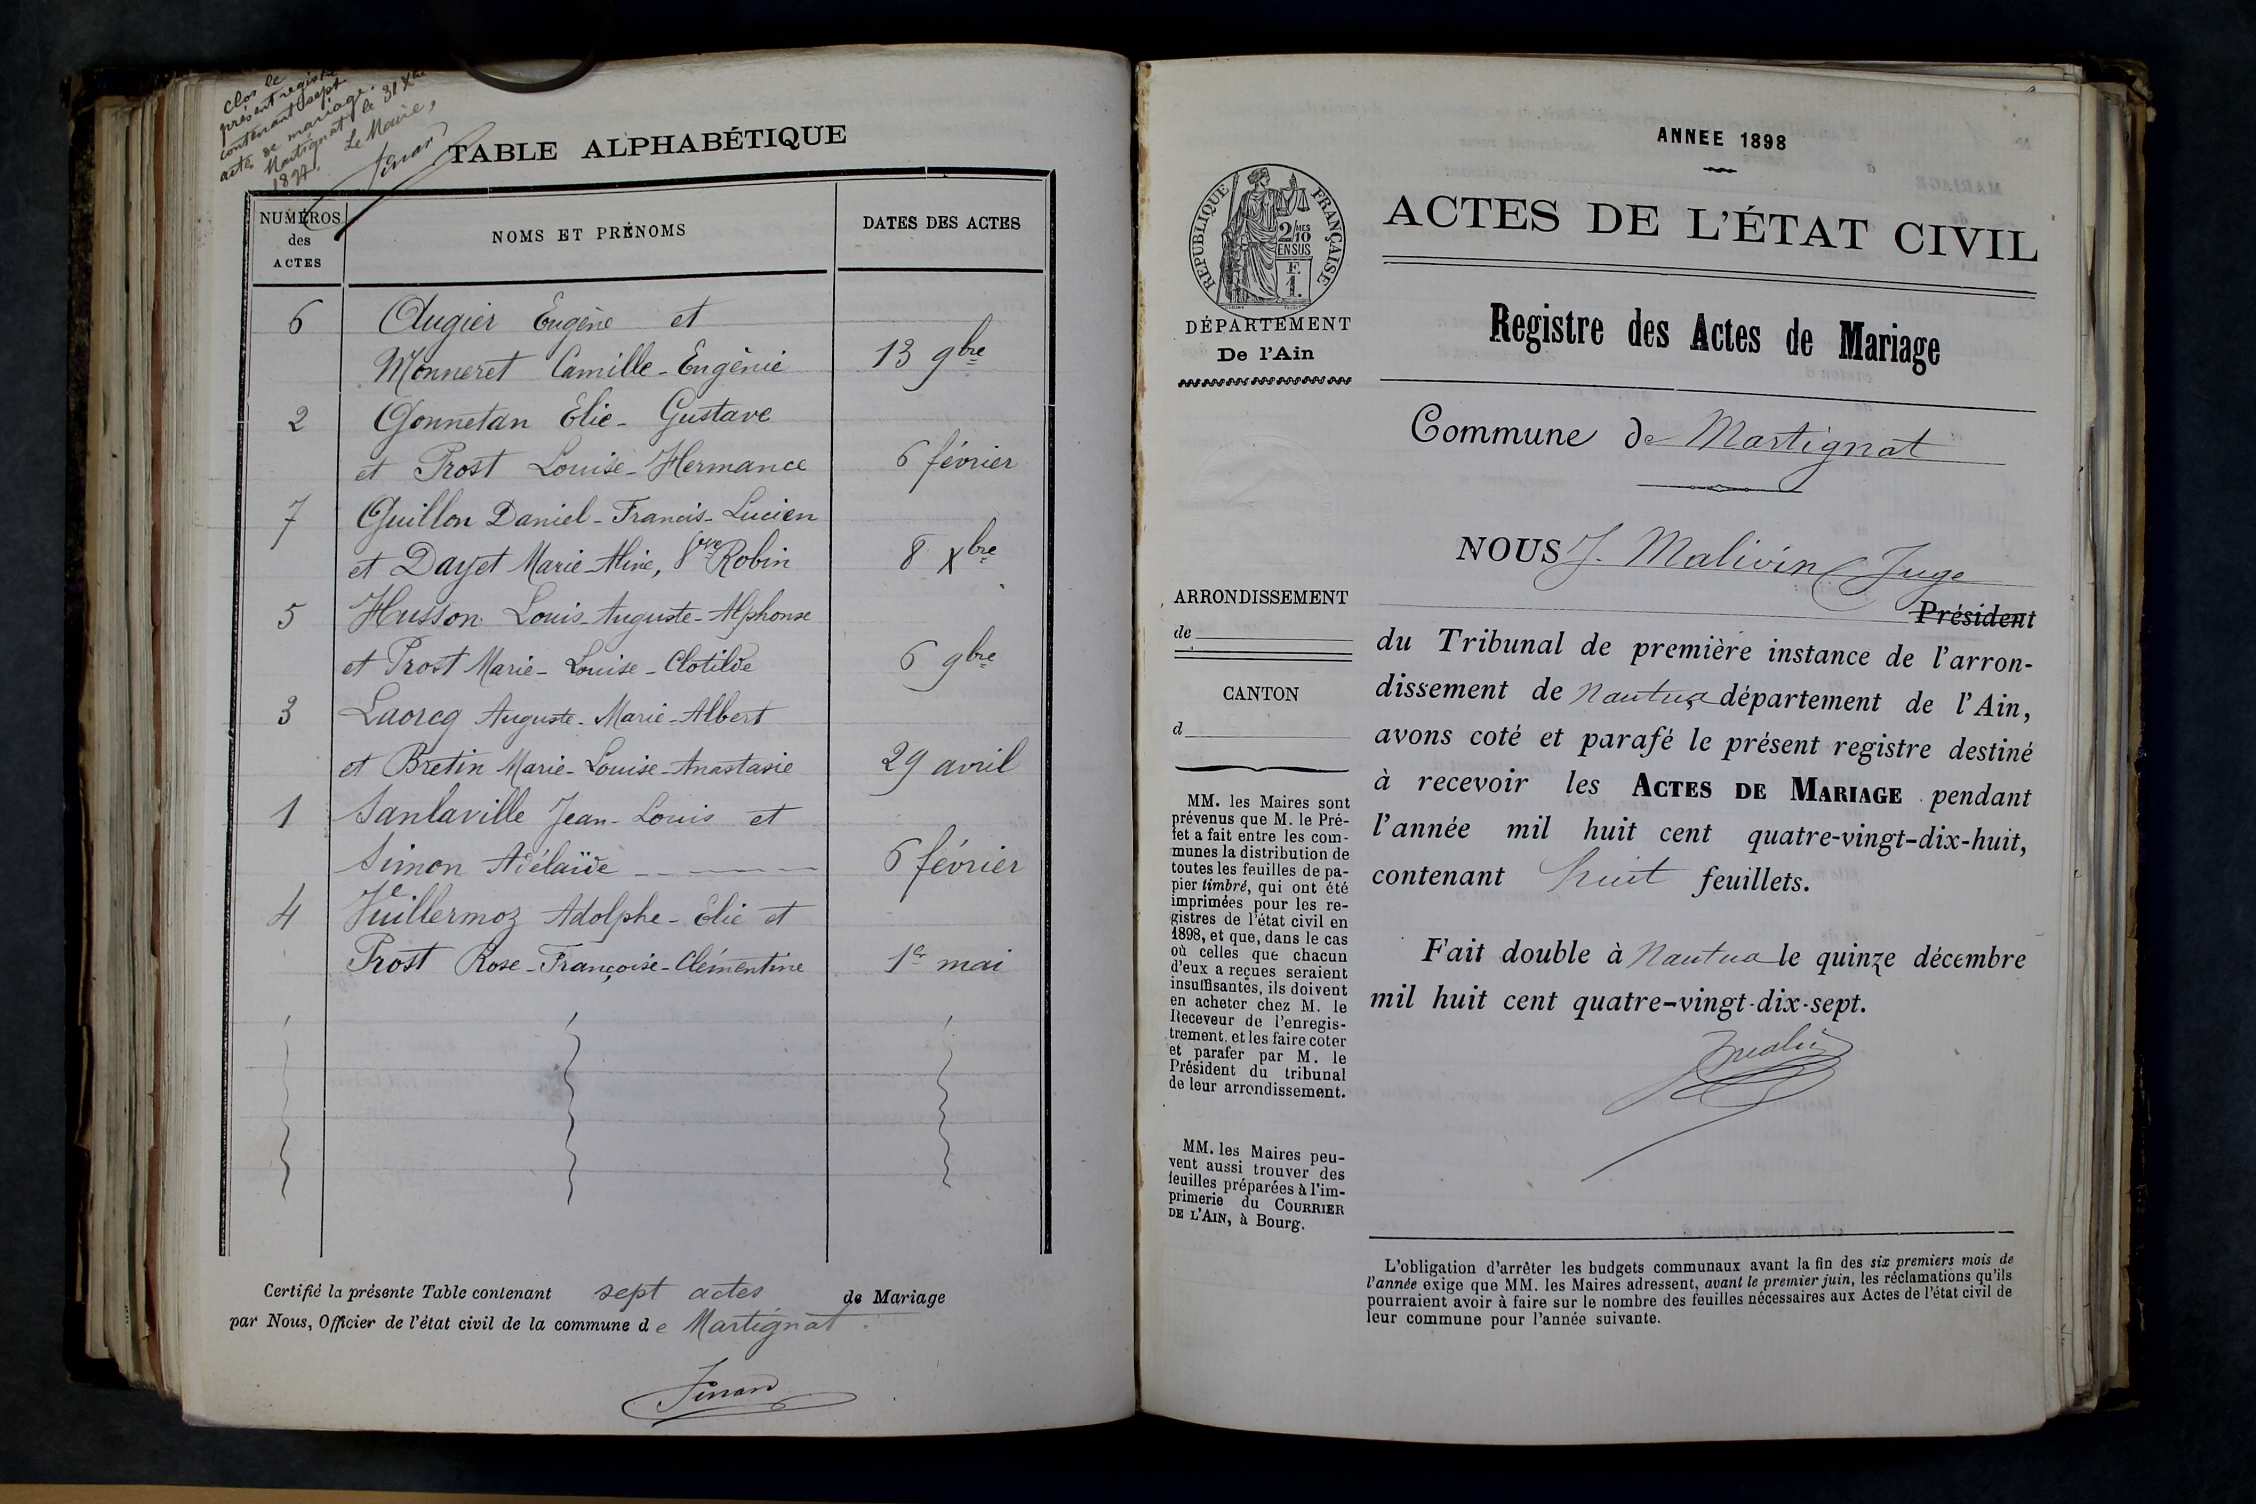 clos le
présent registre
contenant sept
actes de mariage.
Martignat le 31 Xbre
1897.
Le Maire,
TABLE ALPHABÉTIQUE
NUMÉROS
des
ACTES
NOMS ET PRÉNOMS
DATES DES ACTES
6 Augier Eugène et
Monneret Camille-Eugènie 13 9bre
2 Gonnetan Elie-Gustave
et Prost Louise-Hermance 6 février
7 Guillon Daniel-Francis-Lucien
et Dayet Marie-Aline, Vve Robin 8 Xbre
5 Husson Louis-Auguste-Alphonse
et Prost Marie-Louise-Clotilde 6 9bre
3 Lacroq Auguste-Marie-Albert
et Bretin Marie-Louise-Anastasie 29 avril
1 Sanlaville Jean-Louis et
Simon Adélaïde 6 février
4 Vuillermoz Adolphe-Elie et
Prost Rose-Françoise-Clémentine 1er mai
Certifié la présente Table contenant sept actes de Mariage
par Nous, Officier de l'état civil de la commune de Martignat.
ANNEE 1898
RÉPUBLIQUE FRANÇAISE
2/10 MES
EN SUS
F.
1.
DÉPARTEMENT
De l'Ain
ACTES DE L'ÉTAT CIVIL
Registre des Actes de Mariage
Commune de Martignat
NOUS J. Malivin Juge
Président
du Tribunal de première instance de l'arron-
dissement de Nantua département de l'Ain,
avons coté et parafé le présent registre destiné
à recevoir les ACTES DE MARIAGE pendant
l'année mil huit cent quatre-vingt-dix-huit,
contenant huit feuillets.
Fait double à Nantua le quinze décembre
mil huit cent quatre-vingt-dix-sept.
ARRONDISSEMENT
de
CANTON
d
MM. les Maires sont
prévenus que M. le Pré-
fet a fait entre les com-
munes la distribution de
toutes les feuilles de pa-
pier timbré, qui ont été
imprimées pour les re-
gistres de l'état civil en
1898, et que, dans le cas
où celles que chacun
d'eux a reçues seraient
insuffisantes, ils doivent
en acheter chez M. le
Receveur de l'enregis-
trement, et les faire coter
et parafer par M. le
Président du tribunal
de leur arrondissement.
MM. les Maires peu-
vent aussi trouver des
feuilles préparées à l'im-
primerie du COURRIER
DE L'AIN, à Bourg.
L'obligation d'arrêter les budgets communaux avant la fin des six premiers mois de
l'année exige que MM. les Maires adressent, avant le premier juin, les réclamations qu'ils
pourraient avoir à faire sur le nombre des feuilles nécessaires aux Actes de l'état civil de
leur commune pour l'année suivante.